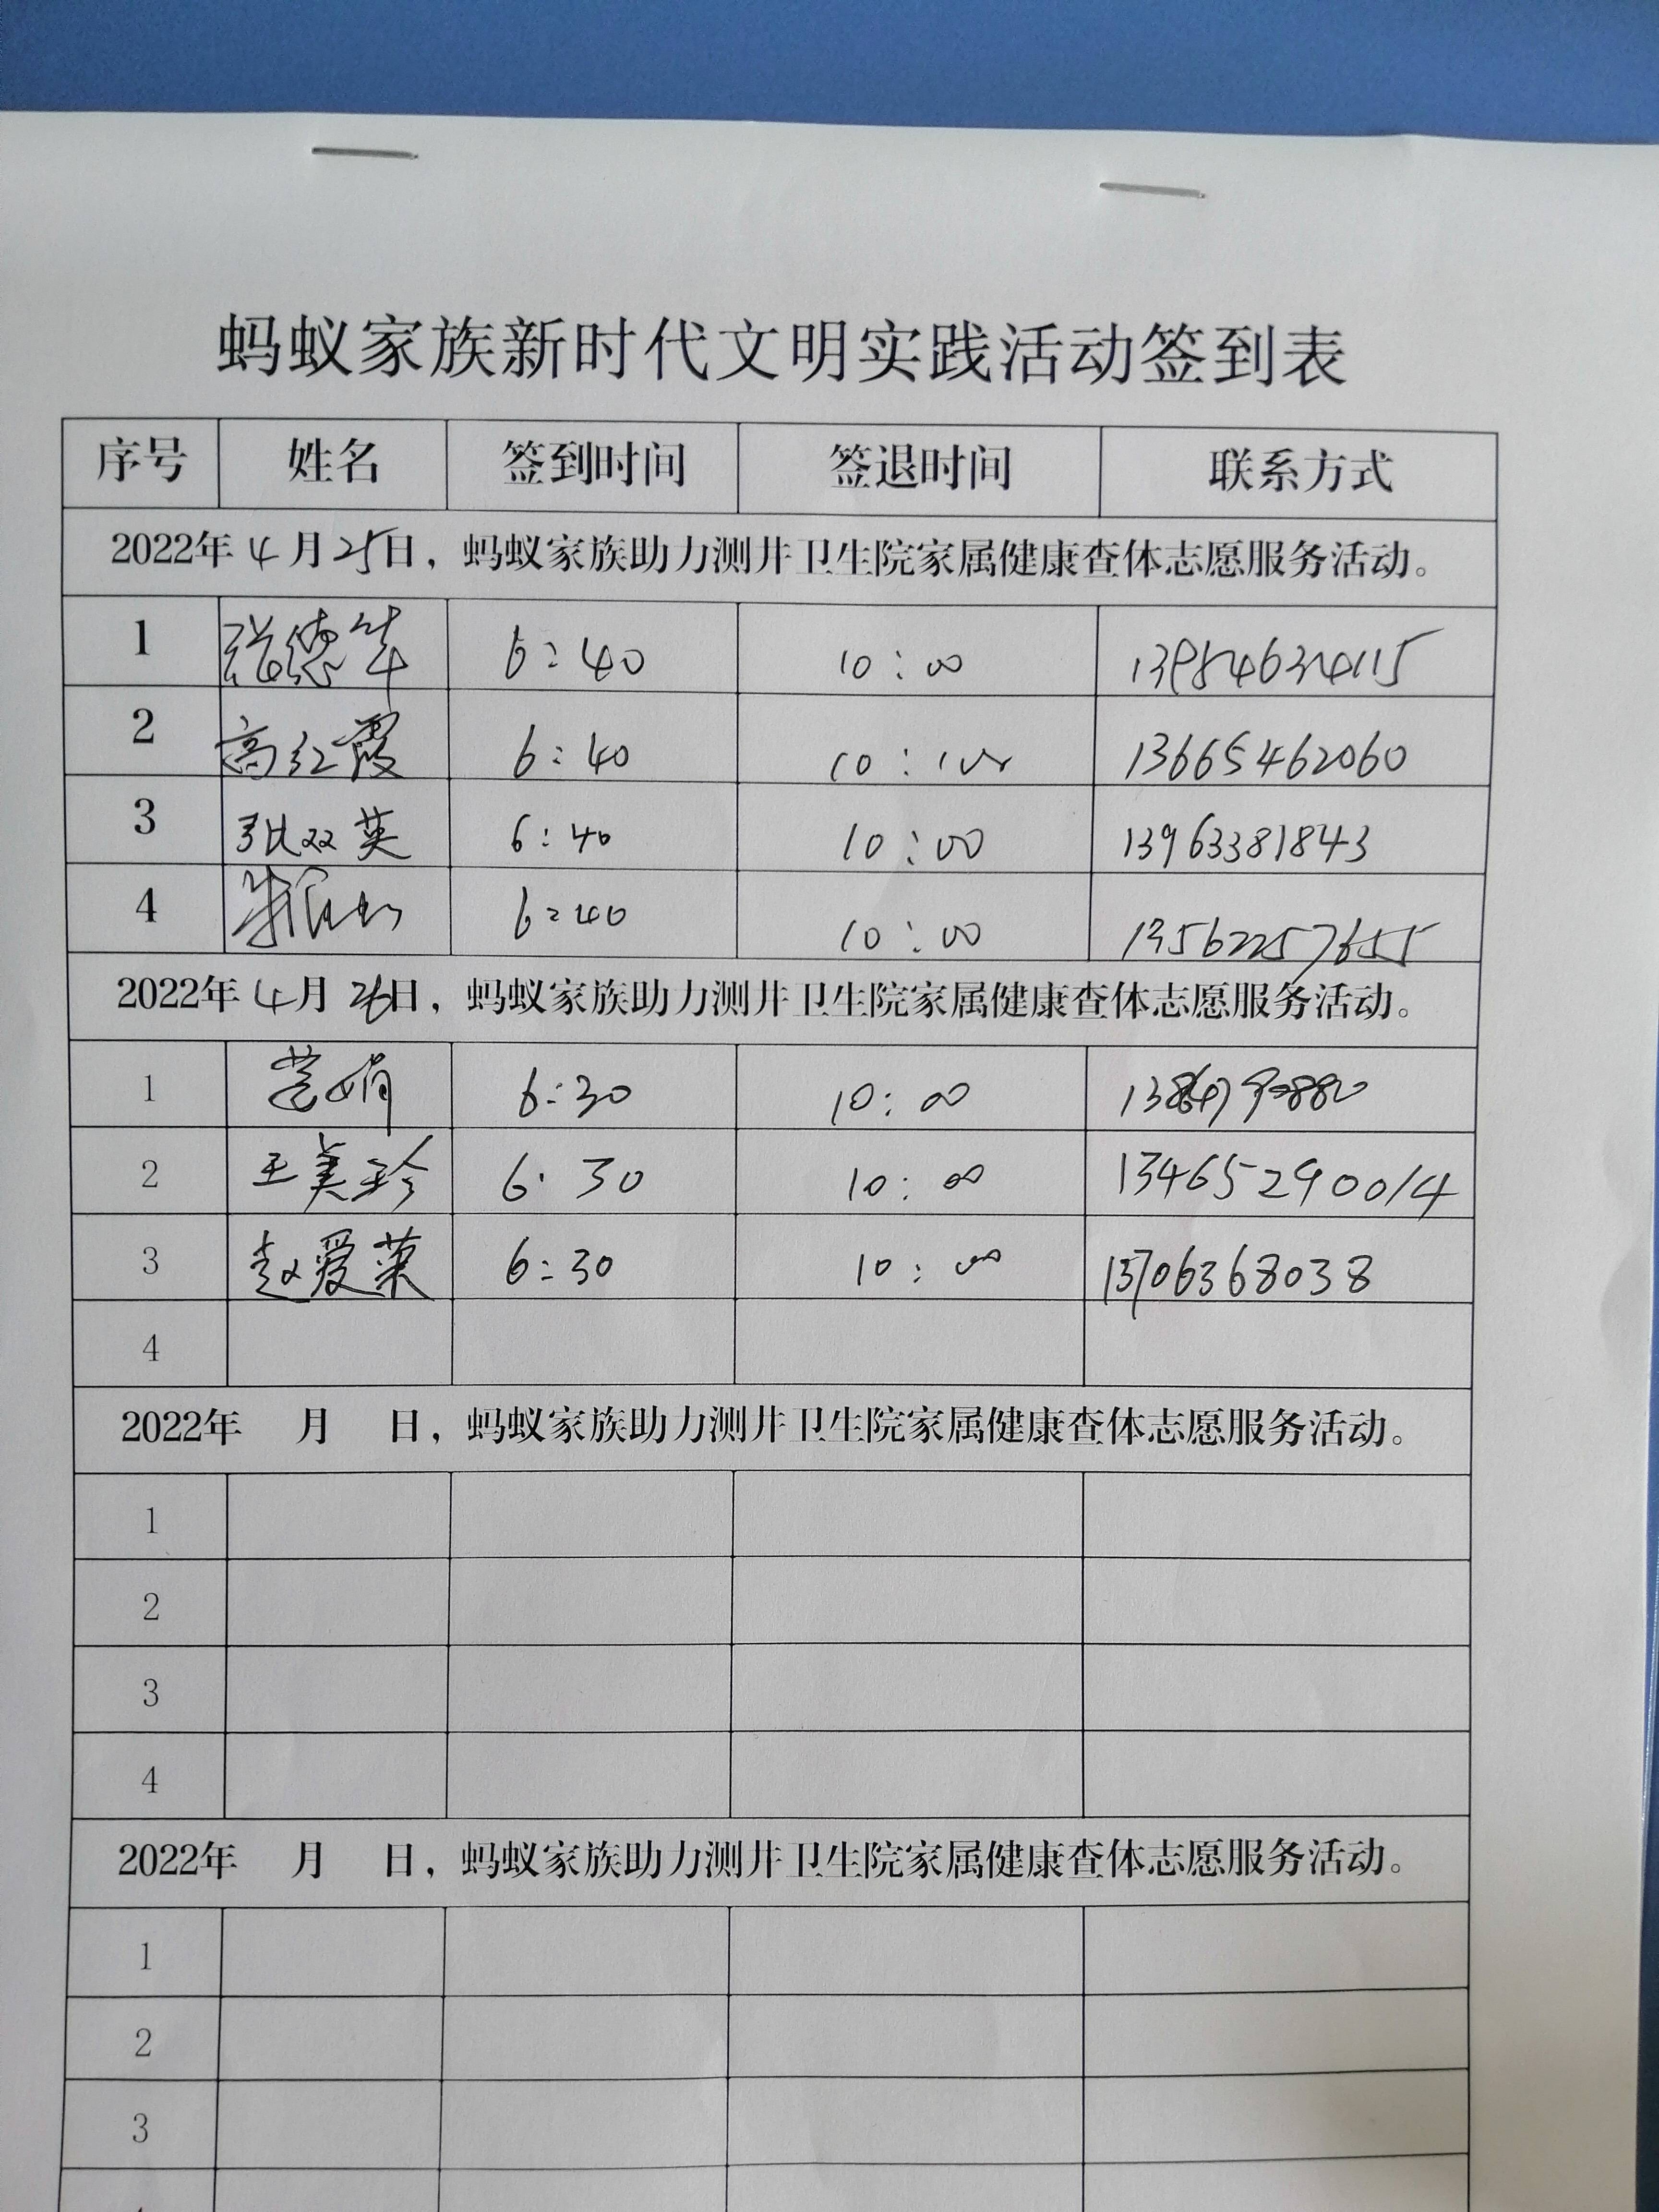 蚂蚁家族新时代文明实践活动签到表
序号 姓名 签到时间 签退时间 联系方式
2022年4月25日，蚂蚁家族助力测井卫生院家属健康查体志愿服务活动。
1 6:40 10:00
2 高红霞 6:40 10: 13665462060
3 张双英 6:40 10:00 13963381843
4 6:40 10:00 13562257655
2022年4月26日，蚂蚁家族助力测井卫生院家属健康查体志愿服务活动。
1 6:30 10:00
2 王美珍 6:30 10:00 13465290014
3 赵爱莱 6:30 10:00 13706368038
4
2022年 月 日，蚂蚁家族助力测井卫生院家属健康查体志愿服务活动。
1
2
3
4
2022年 月 日，蚂蚁家族助力测井卫生院家属健康查体志愿服务活动。
1
2
3